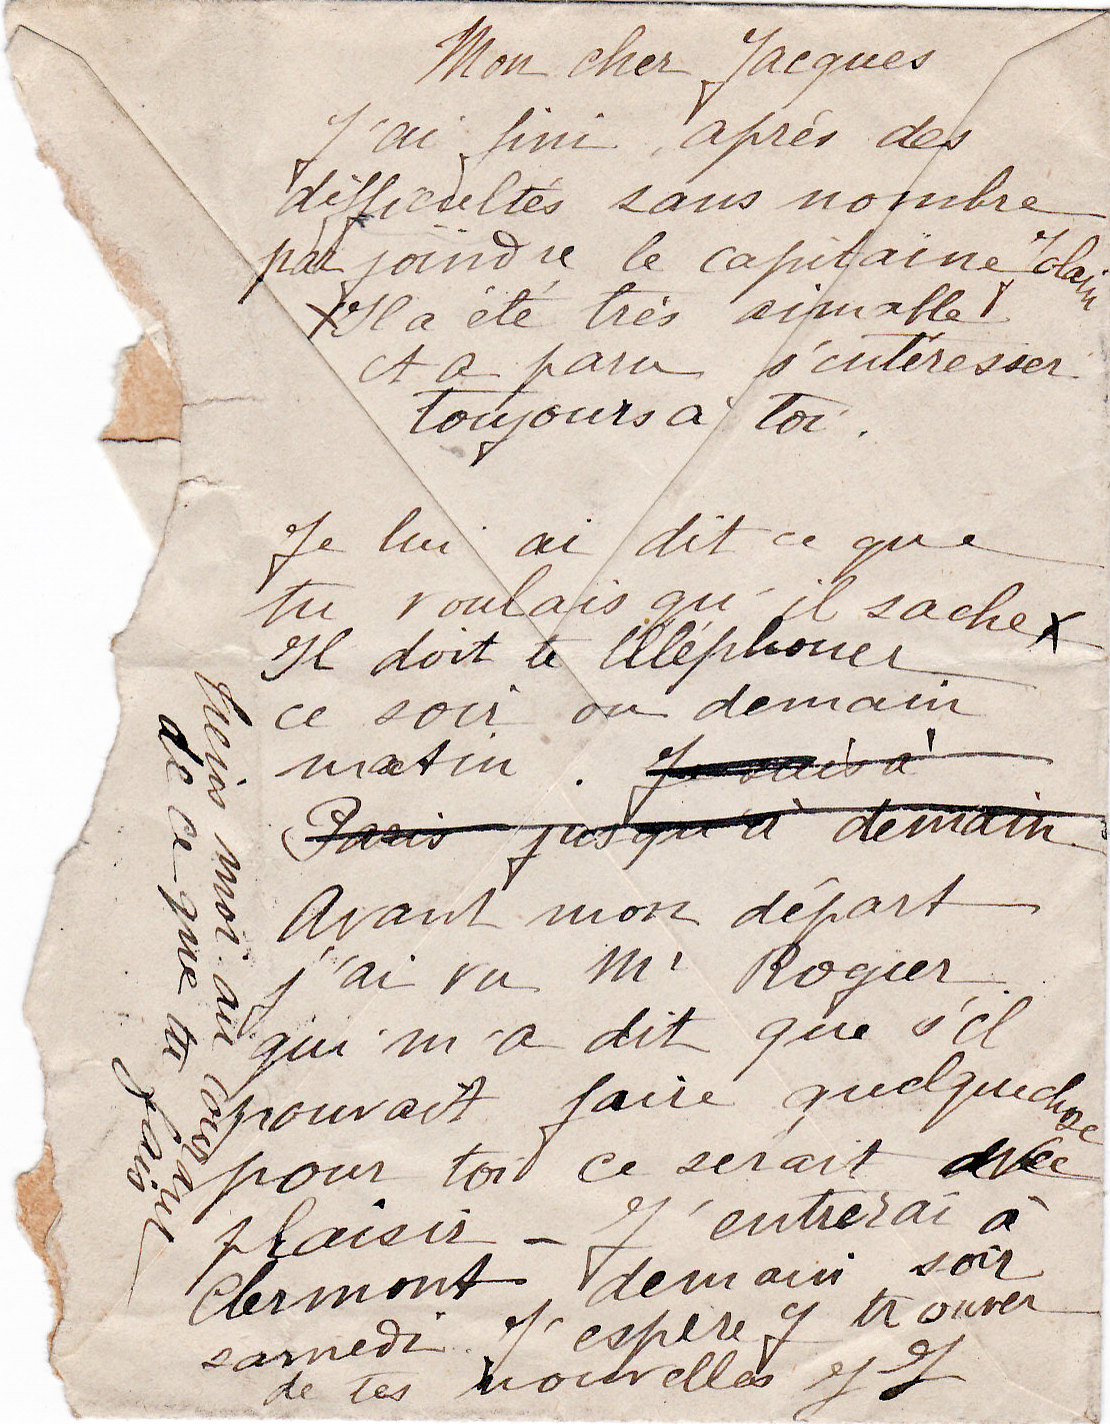 Mon cher Jacques
J'ai fini après des
difficultés sans nombre
par joindre le capitaine Jolain
X Il a été très aimable
et a paru s'intéresser
toujours à toi.
Je lui ai dit ce que
tu voulais qu'il sache X
Il doit te téléphoner
ce soir ou demain
matin. Je suis à
Paris jusqu'à demain
Avant mon départ
j'ai vu Mr Rogier
qui m'a dit que s'il
pouvait faire quelquechose
pour toi ce serait avec
plaisir – J'entrerai à
Clermont demain soir
samedi. J'espère y trouver
de tes nouvelles JJ
Tiens moi au courant
de ce que tu fais